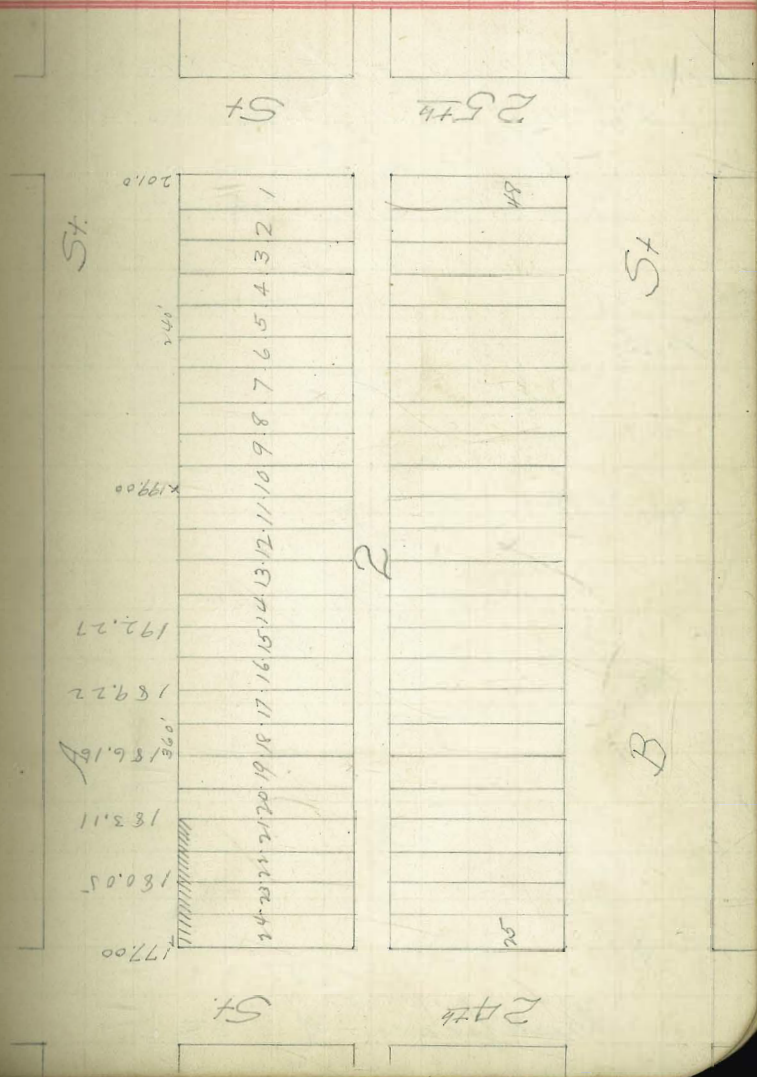 25th St
201.0
240'
x199.00
192.27
189.22
186.16
360'
183.11
180.05
177.00
A St.
1
2
3
4
5
6
7
8
9
10
11
12
13
14
15
16
17
18
19
20
21
22
23
24
2
48
25
B St
24th St.